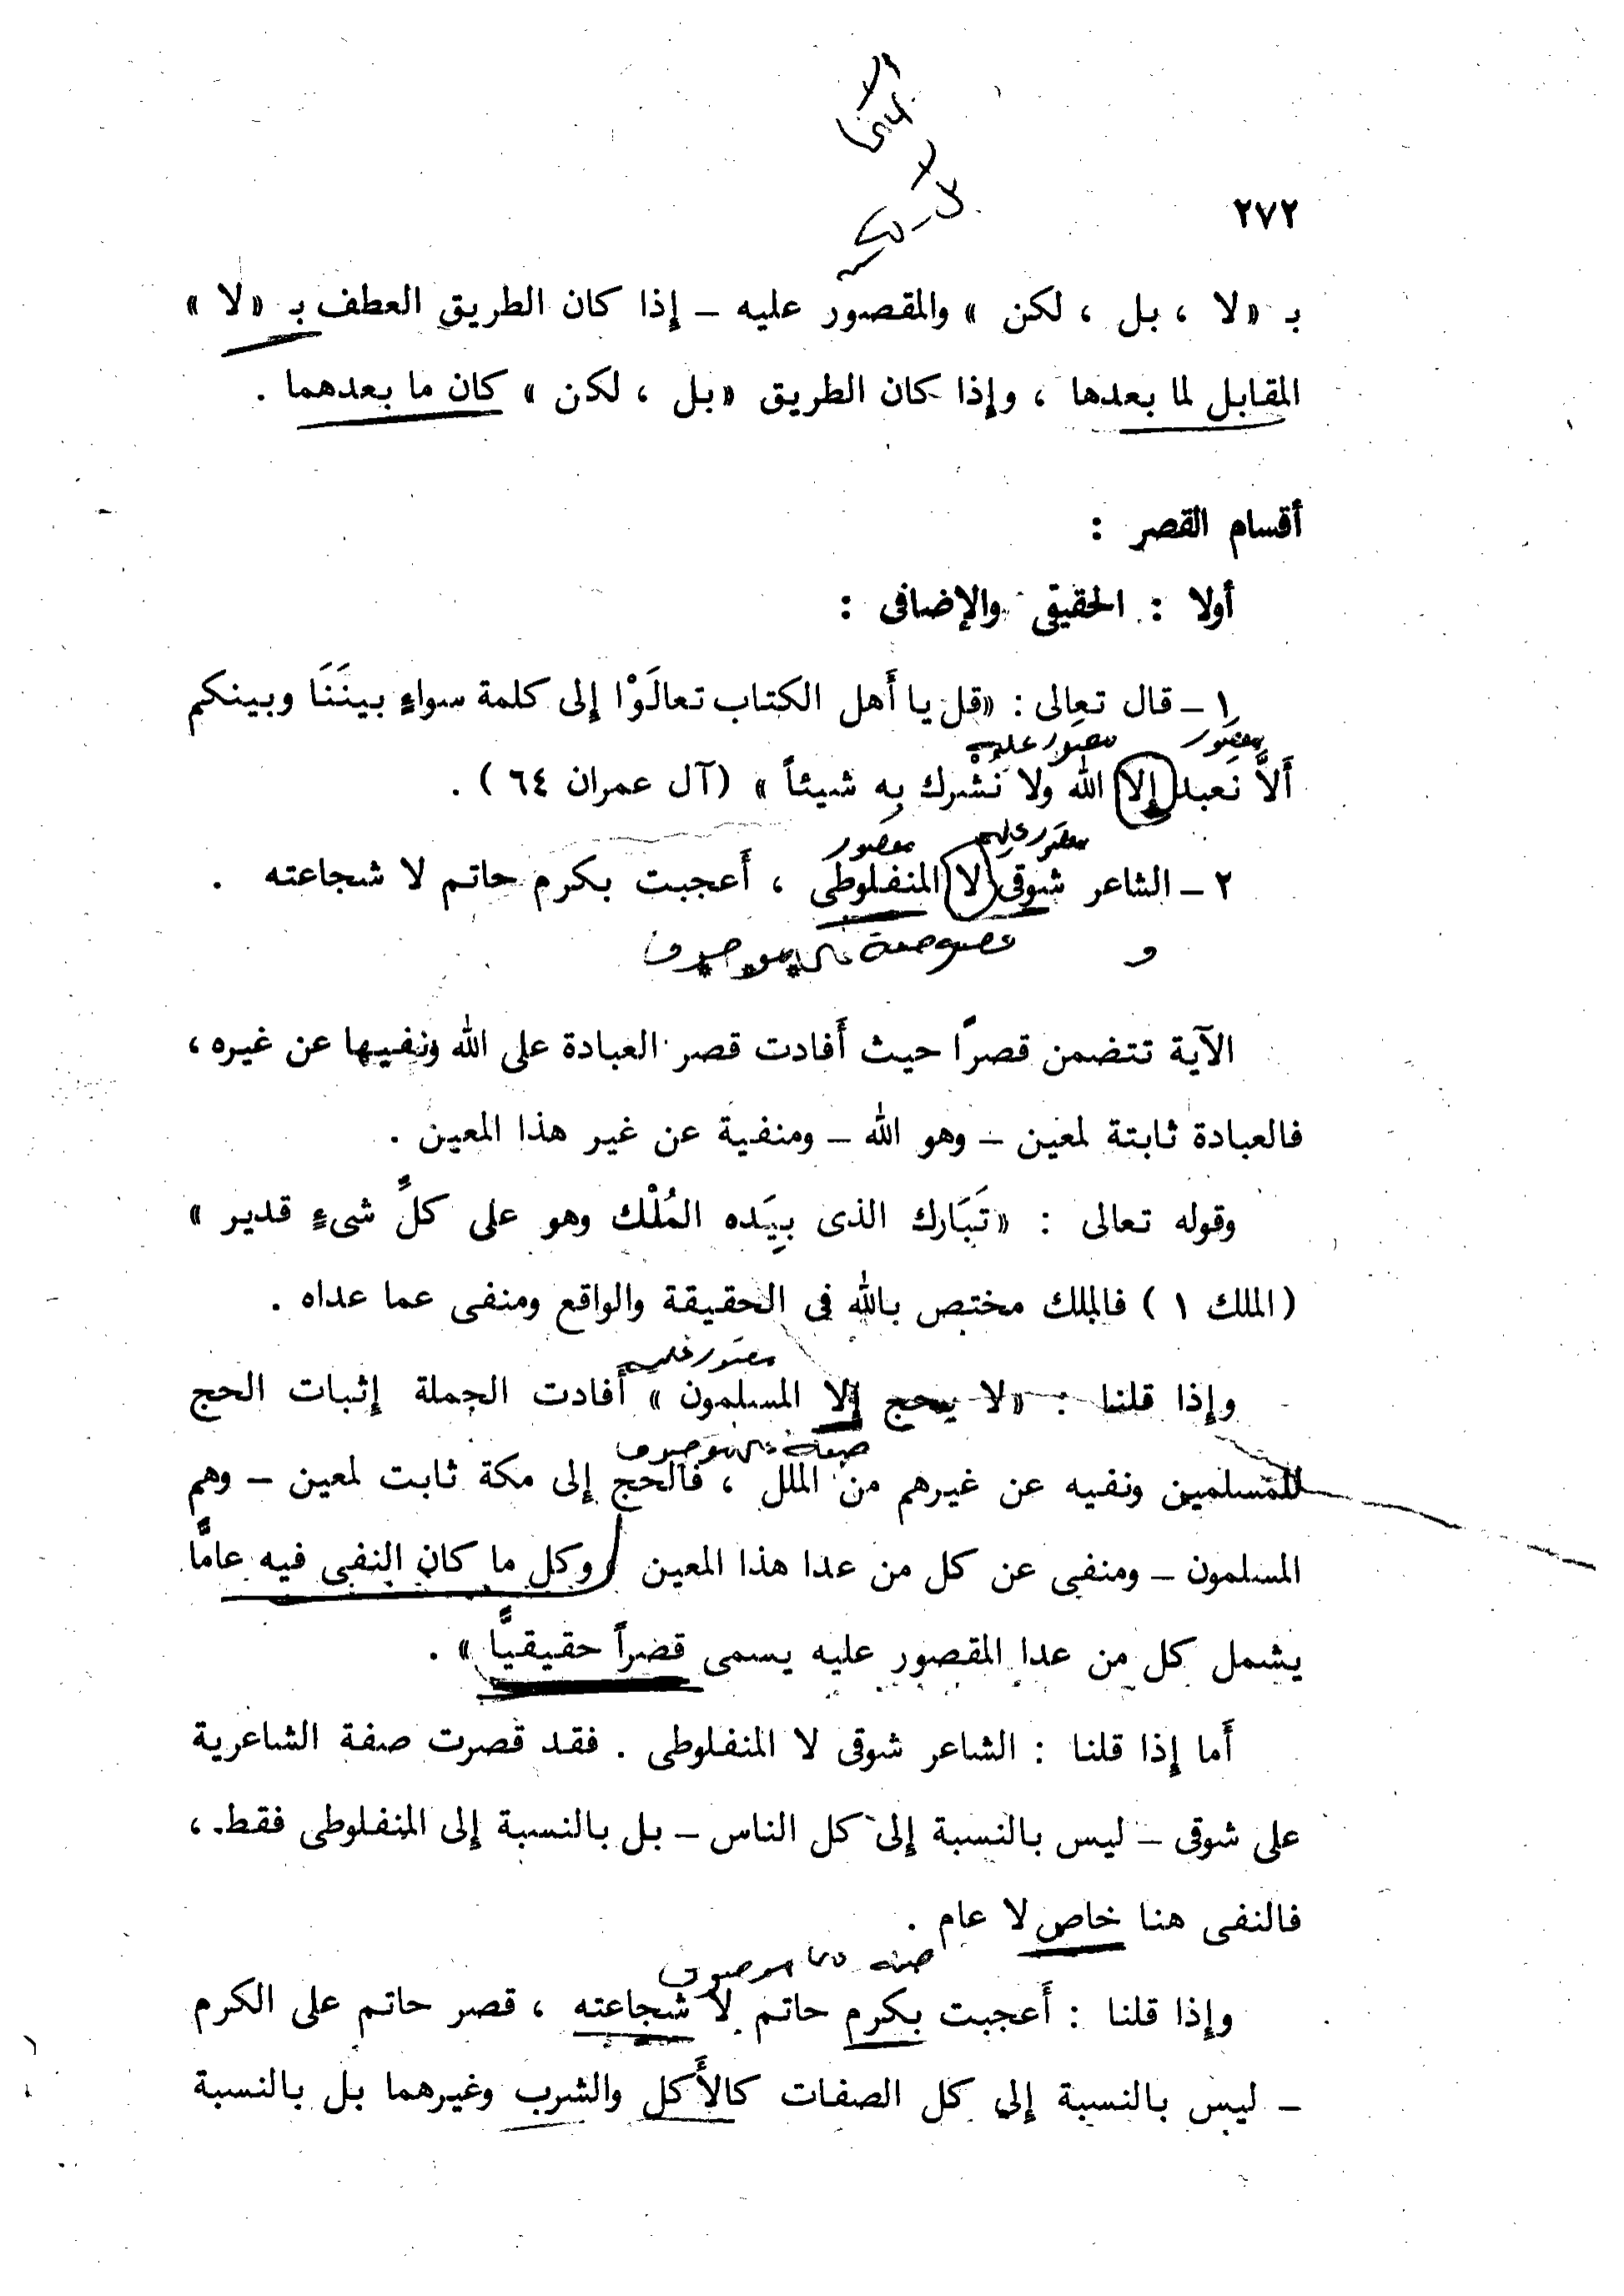 ٢٧٢
بـ «لا ، بل ، لكن » والمقصور عليه – إذا كان الطريق العطف بـ «لا »
المقابل لما بعدها ، وإذا كان الطريق «بل ، لكن » كان ما بعدهما .
أقسام القصر :
أولا : الحقيقى والإضافى :
١ – قال تعالى : «قل يا أَهل الكتاب تعالَوْا إلى كلمة سواءٍ بينَنَا وبينكم
مقصور مقصور عليه
أَلاَّ نَعبد إلا الله ولا نُشْرك به شيئاً » (آل عمران ٦٤ ) .
مقصور عليه مقصور
٢ – الشاعر شوقى لا المنفلوطى ، أَعجبت بكرم حاتم لا شجاعته .
الآية تتضمن قصرًا حيث أَفادت قصر العبادة على الله ونفيها عن غيره ،
فالعبادة ثابتة لمعين – وهو الله – ومنفية عن غير هذا المعين .
وقوله تعالى : «تَبَارك الذى بِيَده المُلْك وهو على كلِّ شىءٍ قدير »
(الملك ١ ) فالملك مختص بالله فى الحقيقة والواقع ومنفى عما عداه .
مقصور عليه
وإذا قلنا : «لا يحج إلا المسلمون » أَفادت الجملة إثبات الحج
صفة على موصوف
للمسلمين ونفيه عن غيرهم من الملل ، فالحج إلى مكة ثابت لمعين – وهم
المسلمون – ومنفى عن كل من عدا هذا المعين وكل ما كان النفى فيه عامًّا
يشمل كل من عدا المقصور عليه يسمى قصراً حقيقيًّا » .
أَما إذا قلنا : الشاعر شوقى لا المنفلوطى . فقد قصرت صفة الشاعرية
على شوقى – ليس بالنسبة إلى كل الناس – بل بالنسبة إلى المنفلوطى فقط ،
فالنفى هنا خاص لا عام .
صفة على موصوف
وإذا قلنا : أَعجبت بكرم حاتم لا شجاعته ، قصر حاتم على الكرم
– ليس بالنسبة إلى كل الصفات كالأَكل والشرب وغيرهما بل بالنسبة